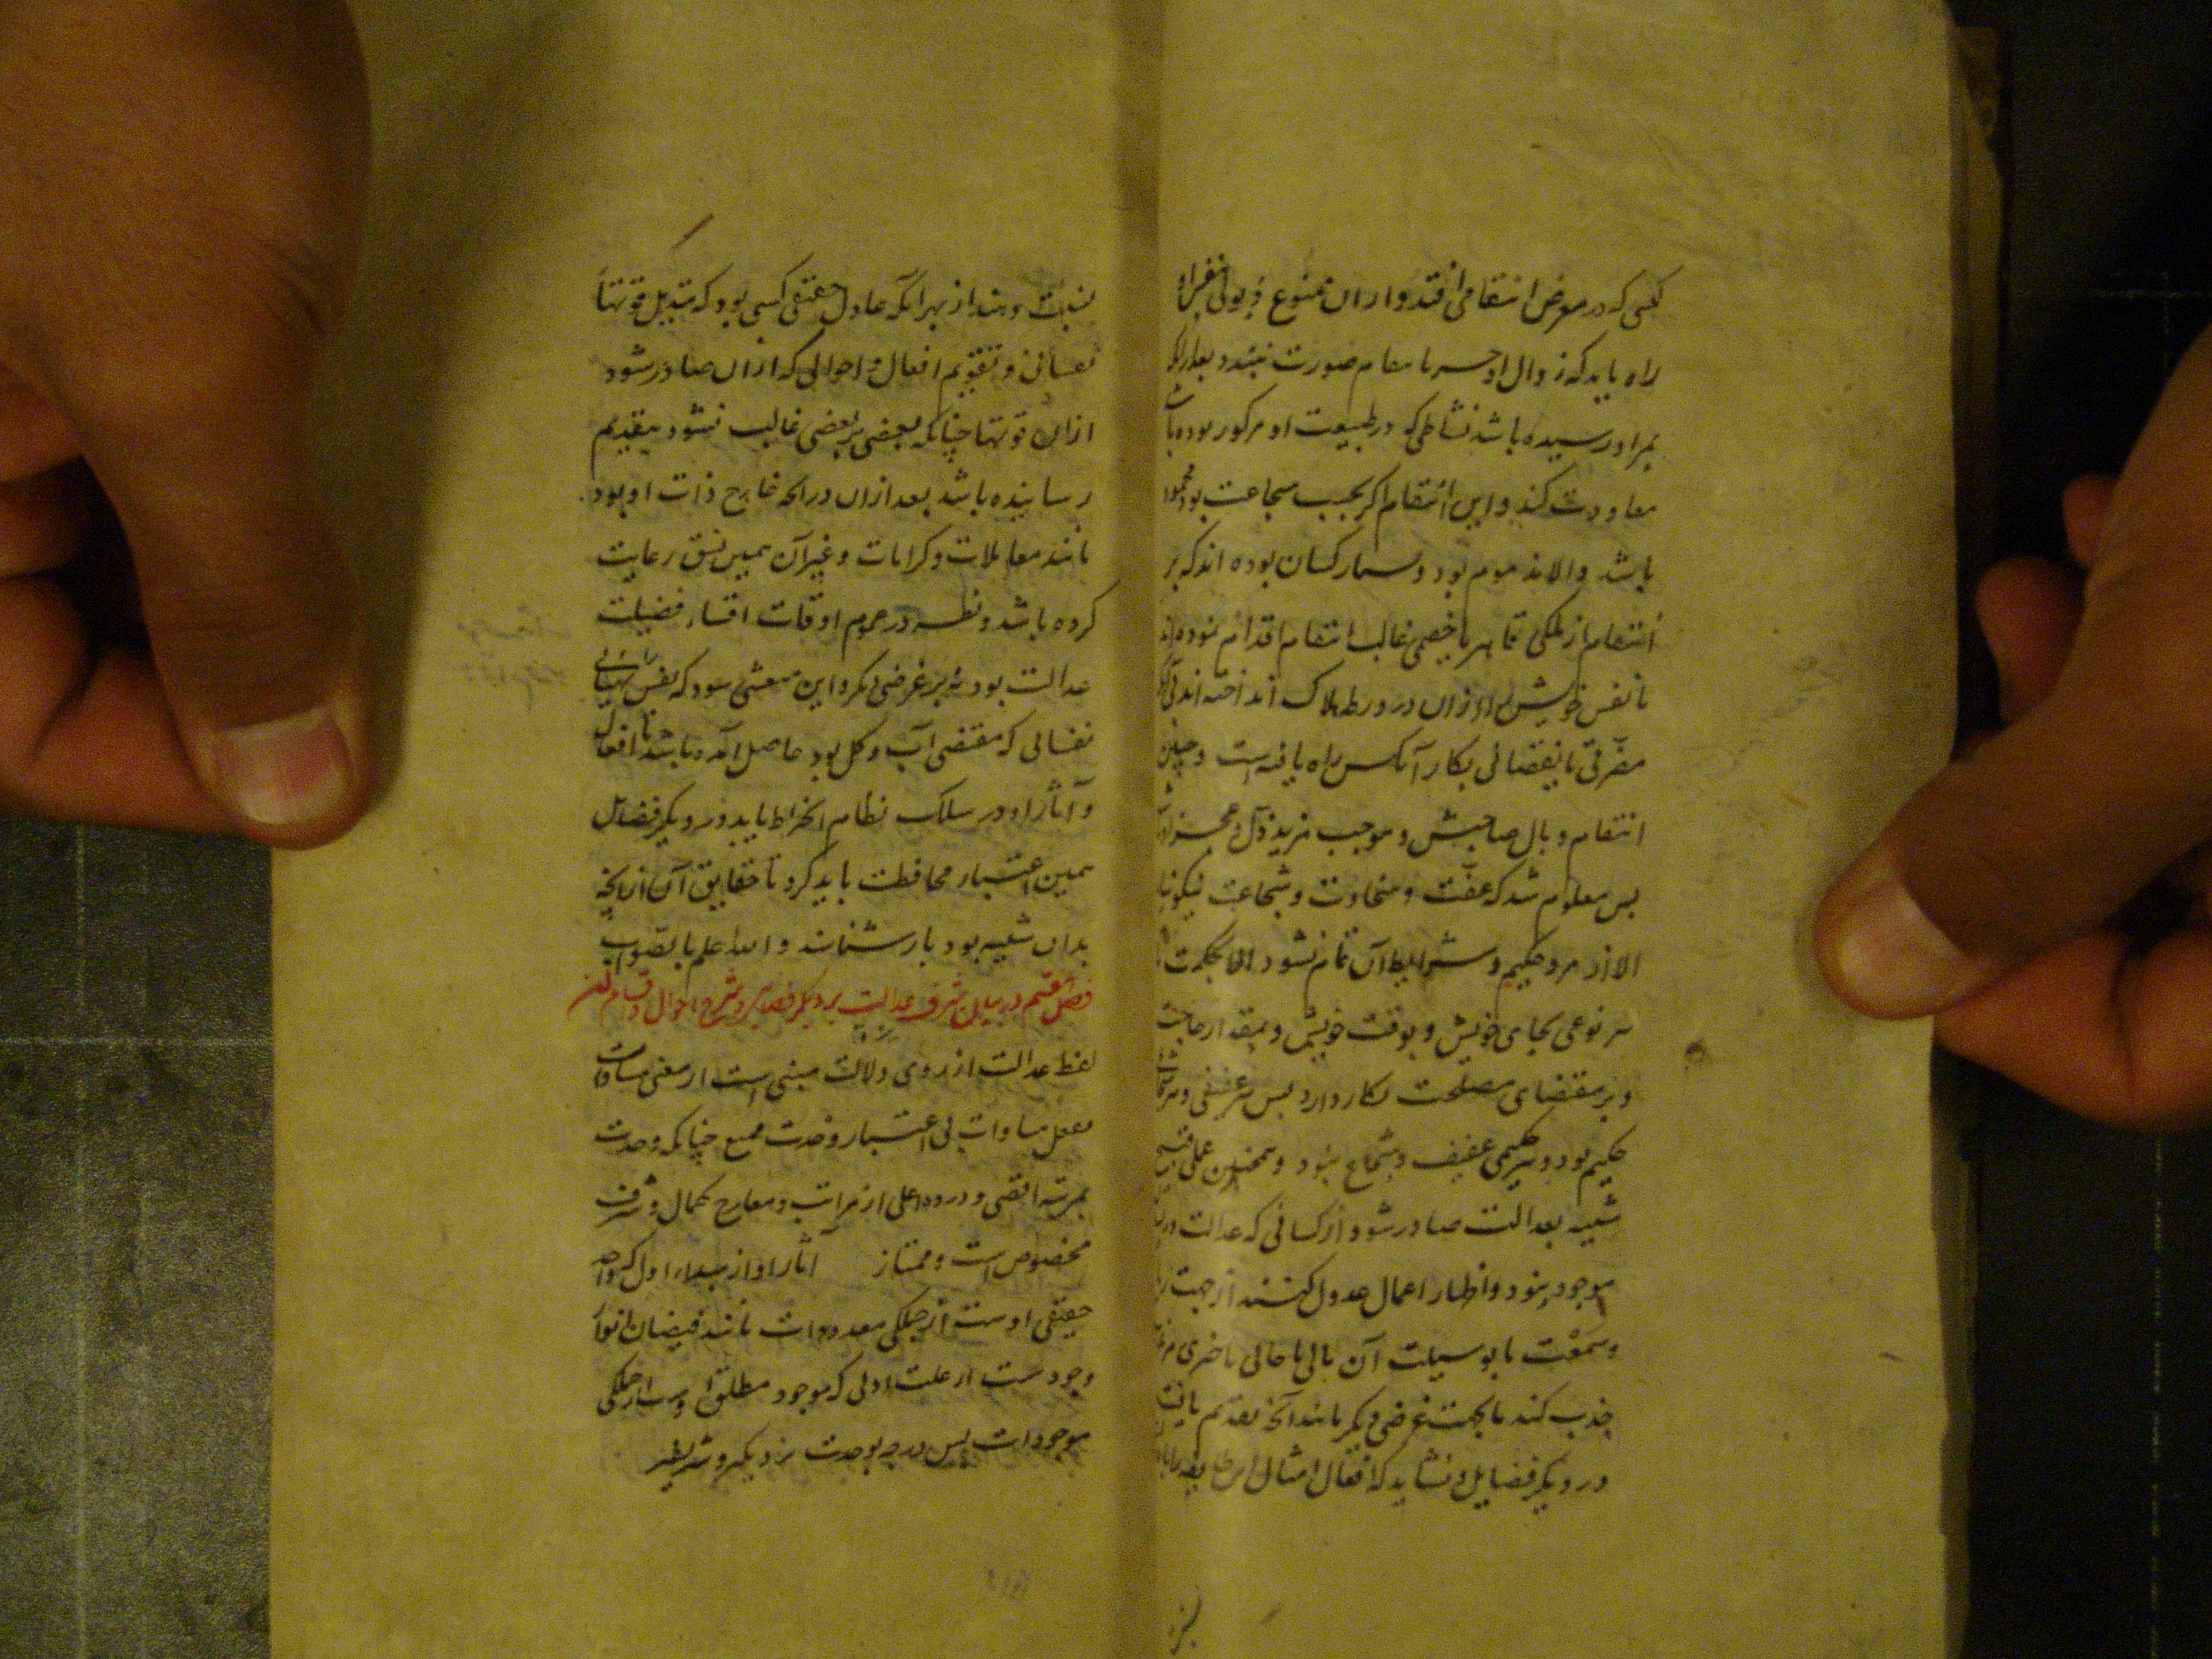 کسی که در معرض انتقامی افتد و ازان ممنوع
راه یابد که زوال او جز بانتقام صورت نبندد و بعد ازانکه
بمراد رسیده باشد نشاطی که در طبیعت او مرکوز بوده باشد
معاودت کند و این انتقام اگر بحسب شجاعت بود محمود
باشد والا مذموم بود و بسیار کسان بوده اند که بر
انتقام از ملکی قاهر یا خصمی غالب انتقام اقدام نموده اند
تا نفس خویش را ازان در ورطه هلاک انداخته اند بی آنکه
مضرتی یا نقصانی بکار آنکس راه یافته است و چنین
انتقام وبال صاحبش و موجب مزید ذل و عجز او
پس معلوم شد که عفت و سخاوت و شجاعت نیکو نیاید
الا از مرد حکیم و شرایط آن تمام نشود الا بحکمت
هر نوعی بجای خویش و بوقت خویش و بمقدار حاجت
و بر مقتضای مصلحت بکار دارد پس هر عفیفی و هر شجاعی
حکیم بود و هر حکیمی عفیف و شجاع بود و همچنین عملی
شبیه بعدالت صادر شود از کسانی که عدالت در
موجود نبود و اظهار اعمال عدول کنند از جهت ریا
و سمعت تا بوسیلت آن مالی یا جاهی یا
جذب کند یا بجهت غرضی دیگر مانند آنکه تقدیم یافت
در دیگر فضایل و نشاید که افعال امثال این طایفه را با
نسبت دهند از بهر آنکه عادل حقیقی کسی بود که تعدیل قوتهاء
نفسانی و تقویم افعال و احوالی که ازان صادر شود
ازان قوتها چنانکه بعضی بر بعضی غالب نشود بتقدیم
رسانیده باشد بعد ازان در آنچه خارج ذات او بود
مانند معاملات و کرامات و غیر آن همین نسق رعایت
کرده باشد و نظر در عموم اوقات اقتناء فضیلت
عدالت بود نه بر غرضی دیگر و این معنی بود که نفس را هیأتی
نفسانی که مقتضی آداب کل بود حاصل آمده باشد تا افعال
و آثار او در سلک نظام انخراط یابد و در دیگر فضایل
همین اعتبار محافظت باید کرد تا حقایق آن از آنچه
بدان شبیه بود باز شناسند والله اعلم بالصواب
فصل هفتم در بیان شرف عدالت بر دیگر فضایل و شرح احوال و اقسام آن
لفظ عدالت از روی دلالت مبنی است از معنی مساوات
تعقل مساوات بی اعتبار وحدت ممتنع چنانکه وحدت
بمرتبه اقصی و درجه اعلی از مراتب و معارج کمال و شرف
مخصوص است و ممتاز آثار او از مبداء اول که واحد
حقیقی اوست از جملگی معدودات مانند فیضان انوار
وجودست از علت اولی که موجود مطلق اوست از جملگی
موجودات پس هرچه بوحدت نزدیکتر شریفتر